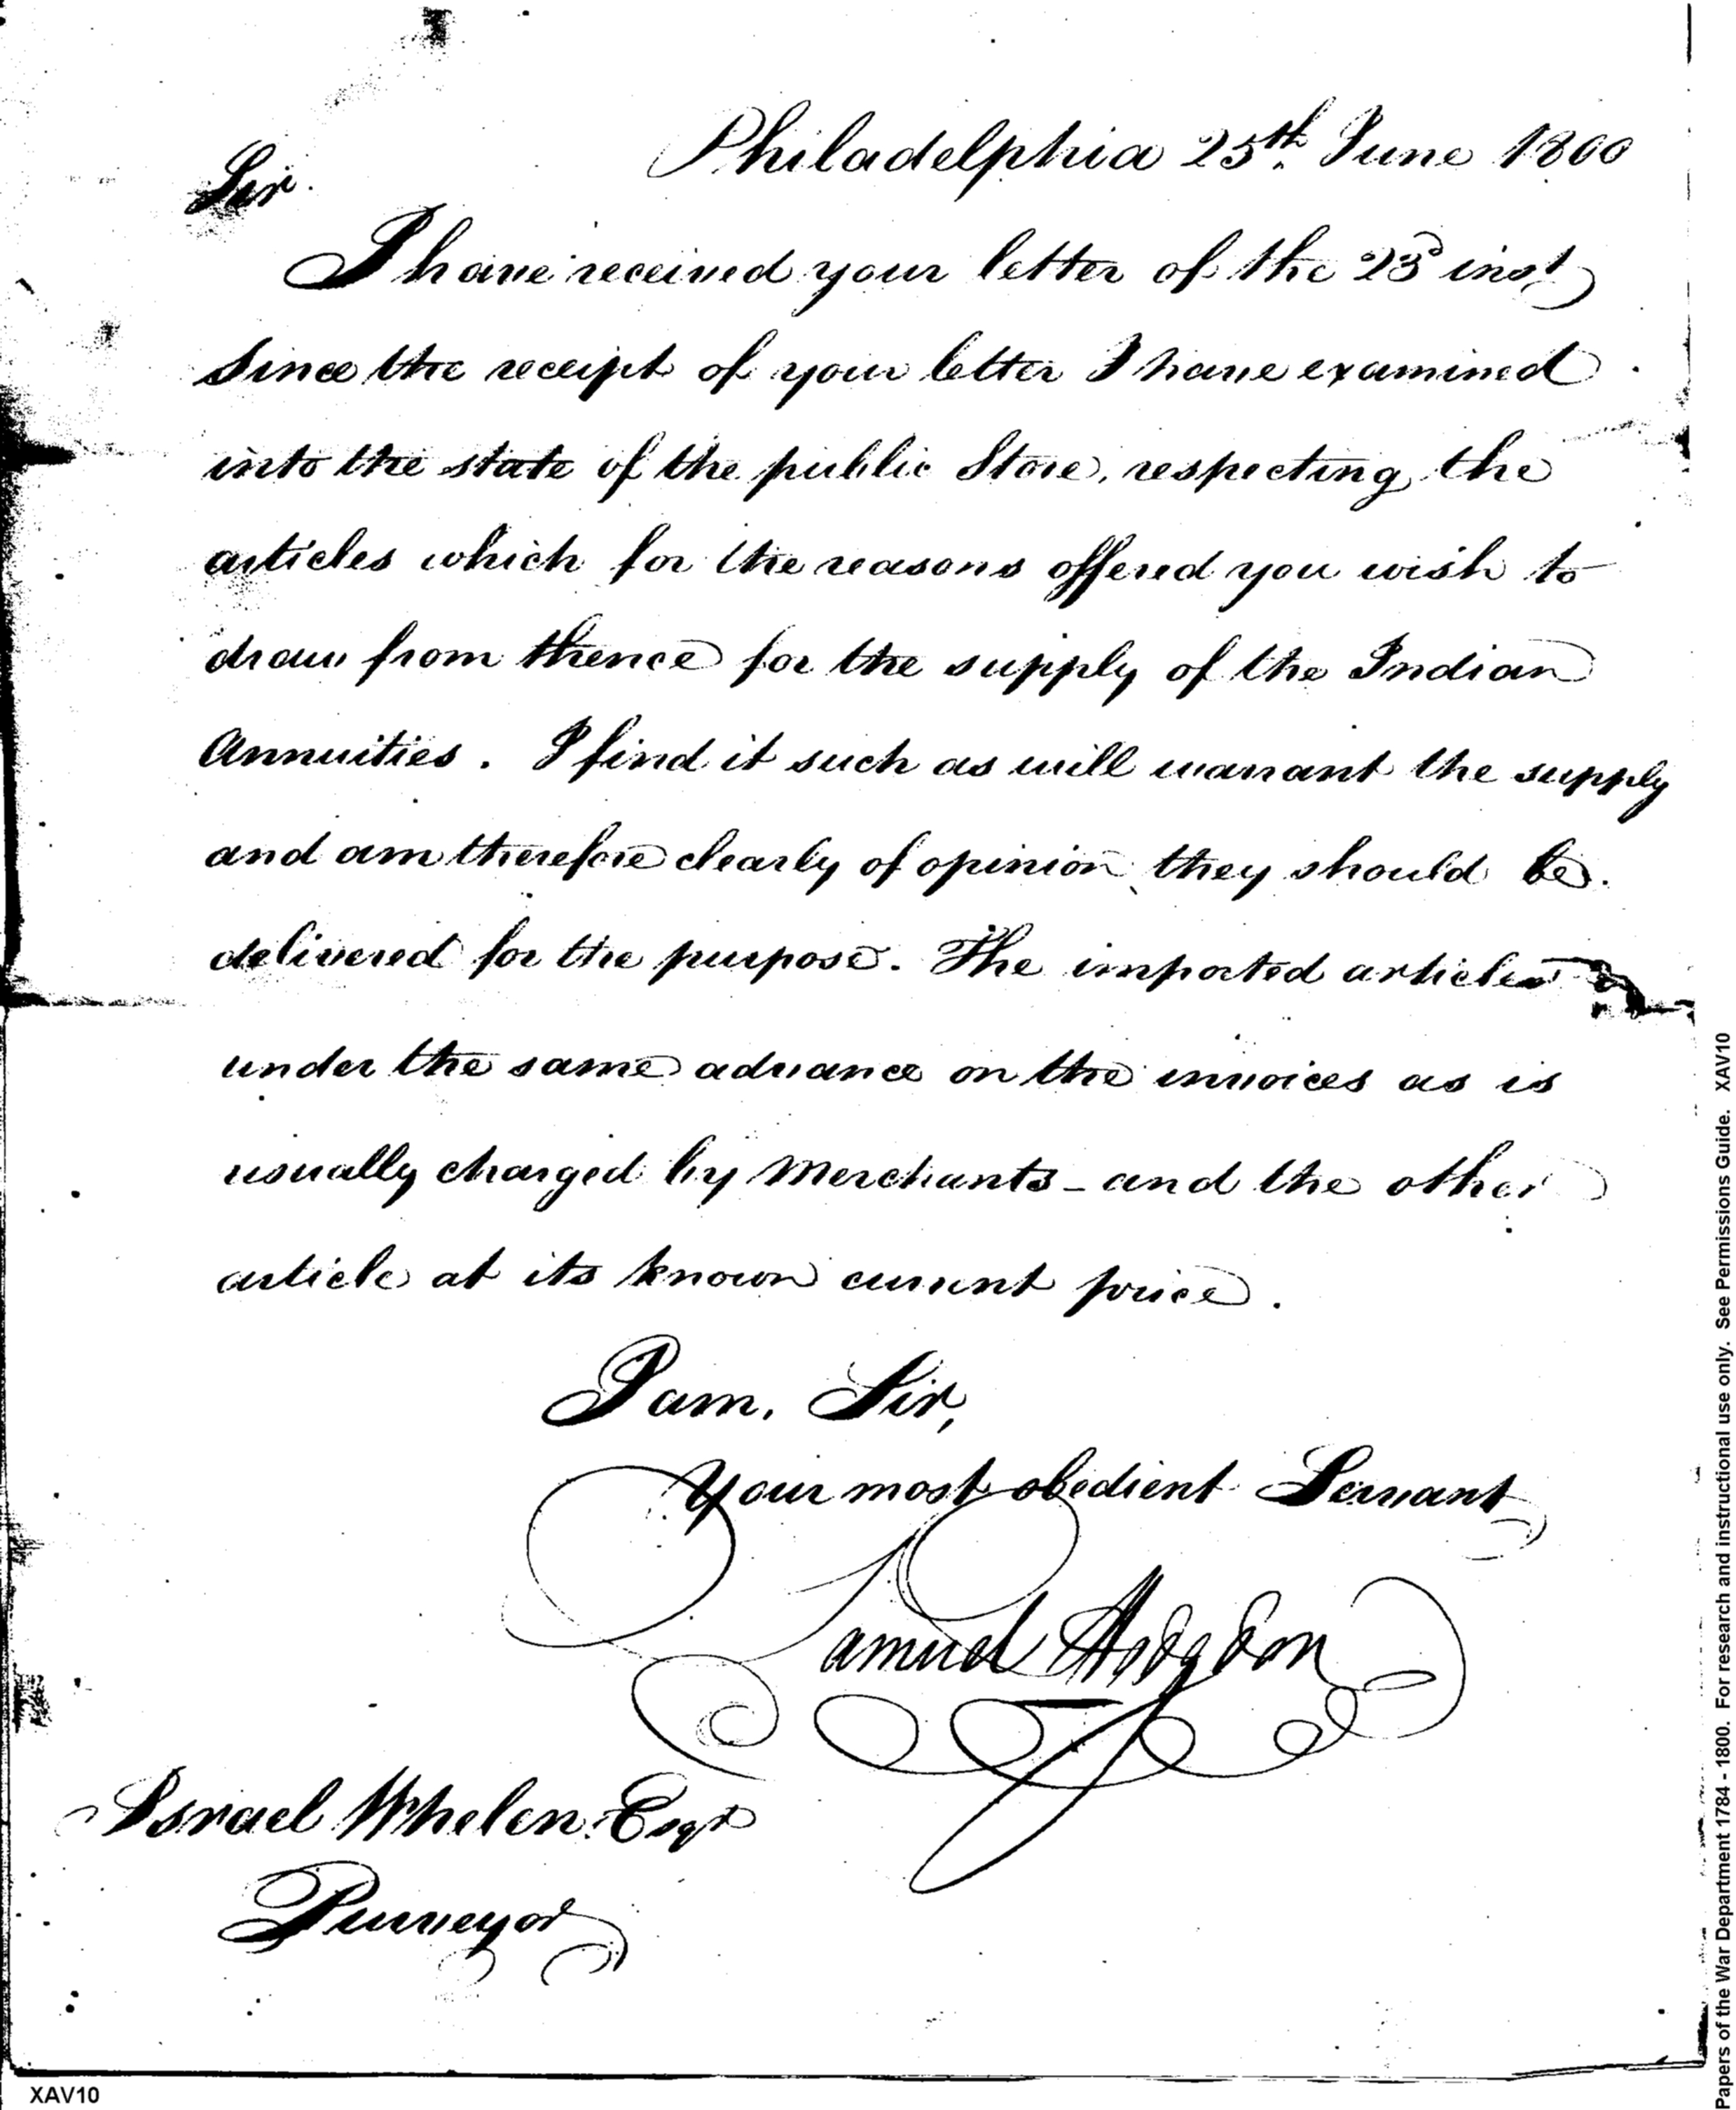 Philadelphia 25th. June 1800
Sir.
I have received your letter of the 23d inst
Since the receipt of your letter I have examined
into the state of the public Store, respecting the
articles which for the reasons offered you wish to
draw from thence for the supply of the Indian
Annuities. I find it such as will warrant the supply
and am therefore clearly of opinion they should be
delivered for the purpose. The imported articles
under the same advance on the invoices as is
usually charged by Merchants - and the other
article at its known current price.
I am, Sir,
Your most obedient Servant
Samuel Hodgdon
Israel Whelen Esqr
Purveyor
XAV10
Papers of the War Department 1784 - 1800. For research and instructional use only. See Permissions Guide. XAV10